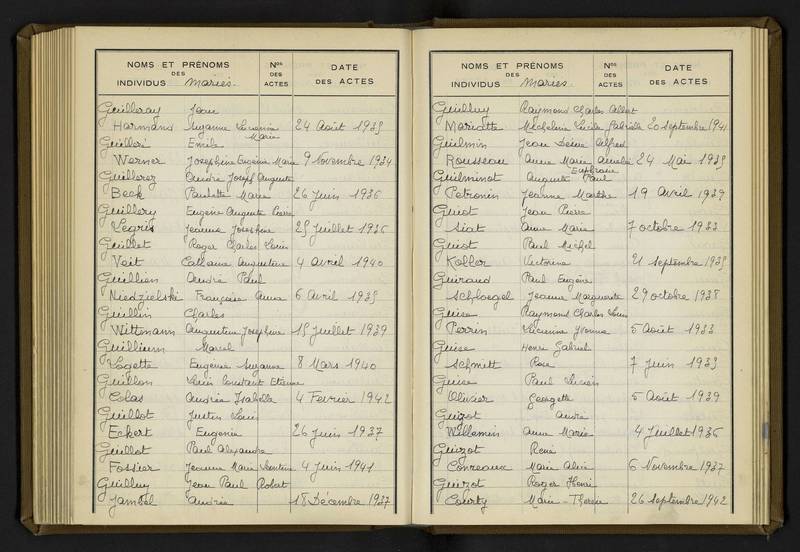 NOMS ET PRÉNOMS
DES
INDIVIDUS Mariés.
Nos
DES
ACTES
DATE
DES ACTES
Guilleray Jean
Harmand Suzanne Lucienne Marie 24 Août 1935
Guilleré Emile
Werner Joséphine Eugénie Marie 9 Novembre 1934
Guillerez André Joseph Auguste
Beck Paulette Marie 26 Juin 1936
Guillery Eugène Auguste Pierre
Legris Jeanne Joséphine 25 Juillet 1936
Guillet Roger Charles Louis
Veit Catherine Augustine 4 Avril 1940
Guillien André Paul
Niedzielski Françoise Anna 6 Avril 1935
Guillin Charles
Wittmann Augustine Joséphine 15 Juillet 1939
Guillium Marcel
Logette Eugénie Suzanne 8 Mars 1940
Guillon Louis Constant Etienne
Colas Andrée Isabelle 4 Février 1942
Guillot Justin Louis
Eckert Eugénie 26 Juin 1937
Guillot Paul Alexandre
Fossier Jeanne Marie 4 Juin 1941
Guilluy Jean Paul Robert
Jambel Andrée 18 Décembre 1937
NOMS ET PRÉNOMS
DES
INDIVIDUS Mariés.
Nos
DES
ACTES
DATE
DES ACTES
Guilluy Raymond Charles Albert
Mariotte Micheline Lucile Gabrielle 20 Septembre 1941
Guilmin Jean Désiré Alfred
Rousseau Anne Marie Amélie 24 Mai 1935
Guilminot Auguste Euphraise Paul
Petronin Jeanne Marthe 19 Avril 1939
Guiot Jean Pierre
Siat Anne Marie 7 octobre 1933
Guiot Paul Michel
Koller Victorine 21 Septembre 1935
Guiraud Paul Eugène
Schloegel Jeanne Marguerite 29 octobre 1938
Guise Raymond Charles Louis
Perrin Lucienne Yvonne 5 Août 1933
Guise Henri Gabriel
Schmitt Rose 7 Juin 1935
Guise Paul Lucien
Olivier Georgette 5 Août 1939
Guizot André
Willemin Anne Marie 4 Juillet 1936
Guizot René
Conreaux Marie Alice 6 Novembre 1937
Guizot Roger Henri
Courty Marie-Thérèse 26 Septembre 1942